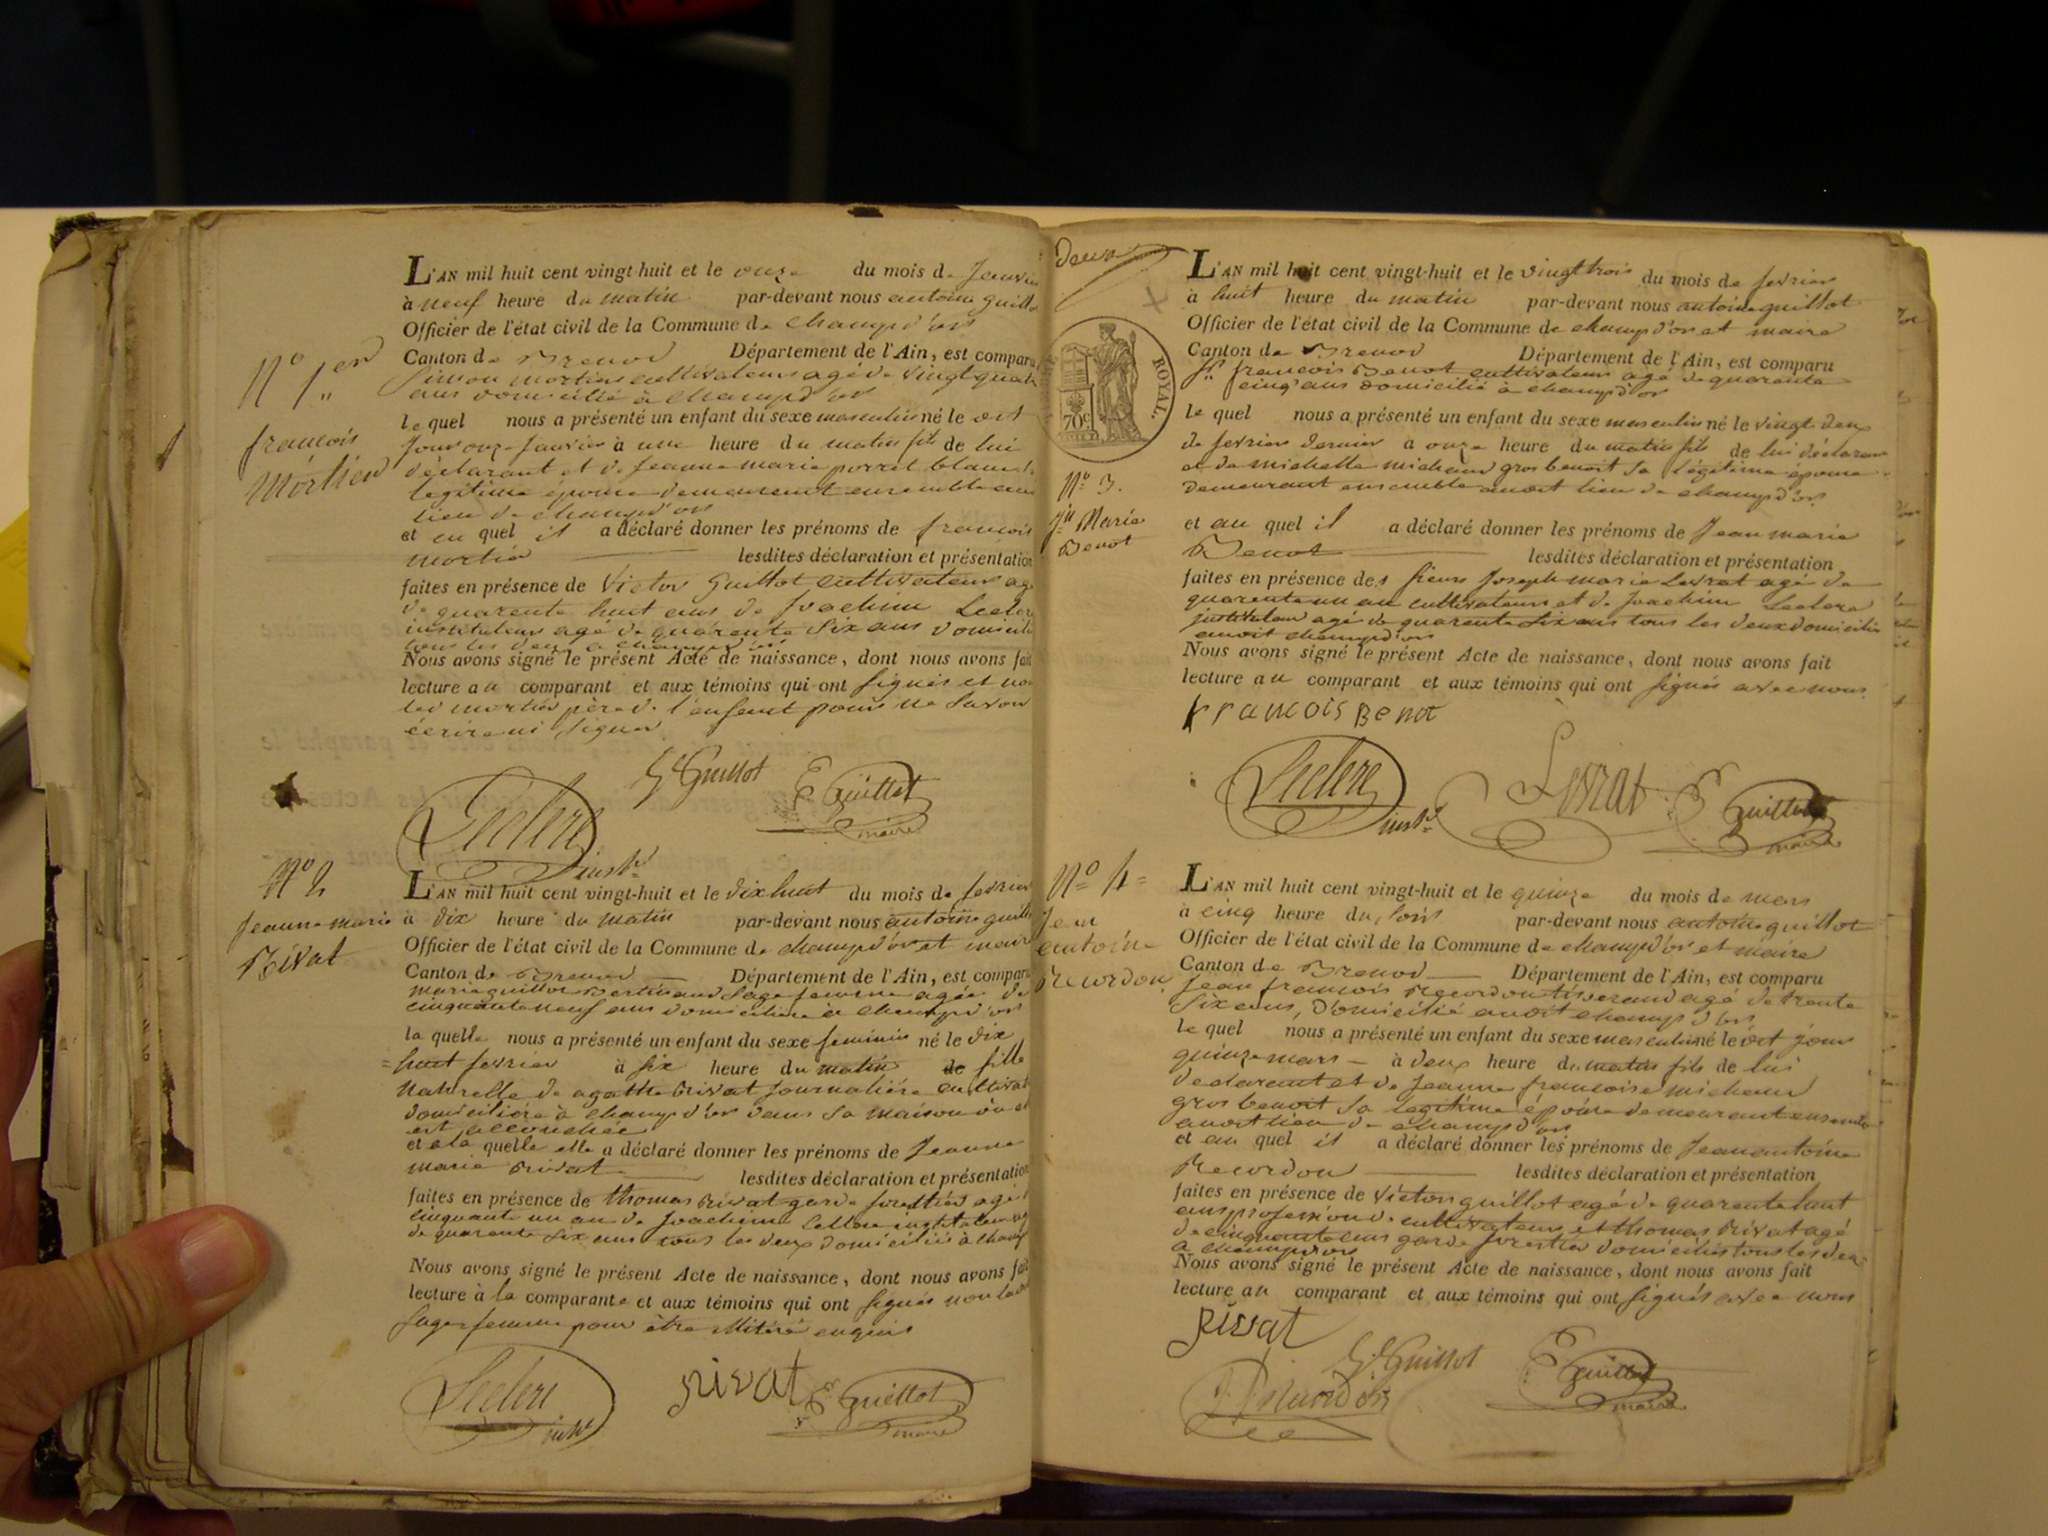 L'AN mil huit cent vingt-huit et le onze du mois de Janvier
à neuf heure du matin par-devant nous antoine guillo
Officier de l'état civil de la Commune de champd'or
Canton de Brenod Département de l'Ain, est comparu
Simon mortier cultivateur agé de vingt quatre
ans domicilié à champd'or
le quel nous a présenté un enfant du sexe masculin né le dit
Jour onze Janvier à une heure du matin fils de lui
déclarant et de Jeanne marie perret blanc
legitime épouse demeurant ensemble au
lieu de champd'or
et au quel il a déclaré donner les prénoms de francois
mortier lesdites déclaration et présentation
faites en présence de Victor Guillot cultivateur agé
de quarente huit ans de Joachim Leclerc
instituteur agé de quarente Six ans domicili
tous les deux a champd'or
Nous avons signé le présent Acte de naissance, dont nous avons fait
lecture au comparant et aux témoins qui ont signés et non
led mortier père de l'enfant pour ne Savoir
écrire ni Signer
N° 1er
francois
Mortier
Leclerc inst.r
Vr Guillot
Guillot
maire
N° 2
Jeanne marie
Rivat
L'AN mil huit cent vingt-huit et le dix huit du mois de fevrier
à dix heure du matin par-devant nous antoine guill
Officier de l'état civil de la Commune de champd'or et maire
Canton de Brenod Département de l'Ain, est comparu
marie guillot Bertinand Sage femme agée de
cinquante neuf ans domiciliée a champd'or
la quelle nous a présenté un enfant du sexe feminin né le dix
=huit fevrier à six heure du matin de fille
Naturelle de agathe Rivat Journalière cultivat
domiciliére à champd'or dans Sa maison où el
est accouchée
et a la quelle elle a déclaré donner les prénoms de Jeanne
marie Rivat lesdites déclaration et présentation
faites en présence de thomas Rivat garde forestier agé
cinquante un an de Joachim instituteur
de quarente Six ans tous les deux domiciliés à champ
Nous avons signé le présent Acte de naissance, dont nous avons fait
lecture à la comparante et aux témoins qui ont signés non la
Sage femme pour être
Leclerc
inst.r
rivat
Guillot
maire
deux
ROYAL.
70c
L'AN mil huit cent vingt-huit et le vingt trois du mois de fevrier
à huit heure du matin par-devant nous antoine guillot
Officier de l'état civil de la Commune de champd'or et maire
Canton de Brenod Département de l'Ain, est comparu
Sr francois Benot cultivateur agé de quarente
cinq ans domicilié à champd'or
le quel nous a présenté un enfant du sexe masculin né le vingt deux
de fevrier dernier à onze heure du matin fils de lui déclarant
et de michelle michaud gros benoit Sa légitime épouse
demeurant ensemble audit lieu de champd'or
N° 3.
Jn Marie
Benot
et au quel il a déclaré donner les prénoms de Jean marie
Benot lesdites déclaration et présentation
faites en présence des sieurs Joseph marie Levrat agé de
quarente un an cultivateur et de Joachim Leclerc
instituteur agé de quarente Six ans tous les deux domiciliés
audit champd'or
Nous avons signé le présent Acte de naissance, dont nous avons fait
lecture au comparant et aux témoins qui ont signés avec nous
francois Benot
Leclerc
inst.r
Levrat
Guillot
maire
N° 4=
Jean
antoine
Recordon
L'AN mil huit cent vingt-huit et le quinze du mois de mars
à cinq heure du soir par-devant nous antoine guillot
Officier de l'état civil de la Commune de champd'or et maire
Canton de Brenod Département de l'Ain, est comparu
Jean francois Recordon tisserand agé de trente
Six ans, Domicilié audit champd'or
le quel nous a présenté un enfant du sexe masculin né le dit jour
quinze mars à deux heure du matin fils de lui
declarant et de Jeanne francoise michaud
gros benoit Sa legitime épouse demeurant ensemble
audit lieu de champd'or
et au quel il a déclaré donner les prénoms de Jean antoine
Recordon lesdites déclaration et présentation
faites en présence de Victor guillot agé de quarente huit
ans profession de cultivateur et thomas Rivat agé
de cinquante ans garde forestier domiciliés tous les deux
à champd'or
Nous avons signé le présent Acte de naissance, dont nous avons fait
lecture au comparant et aux témoins qui ont signés avec nous
rivat
Vr Guillot
Guillot
maire